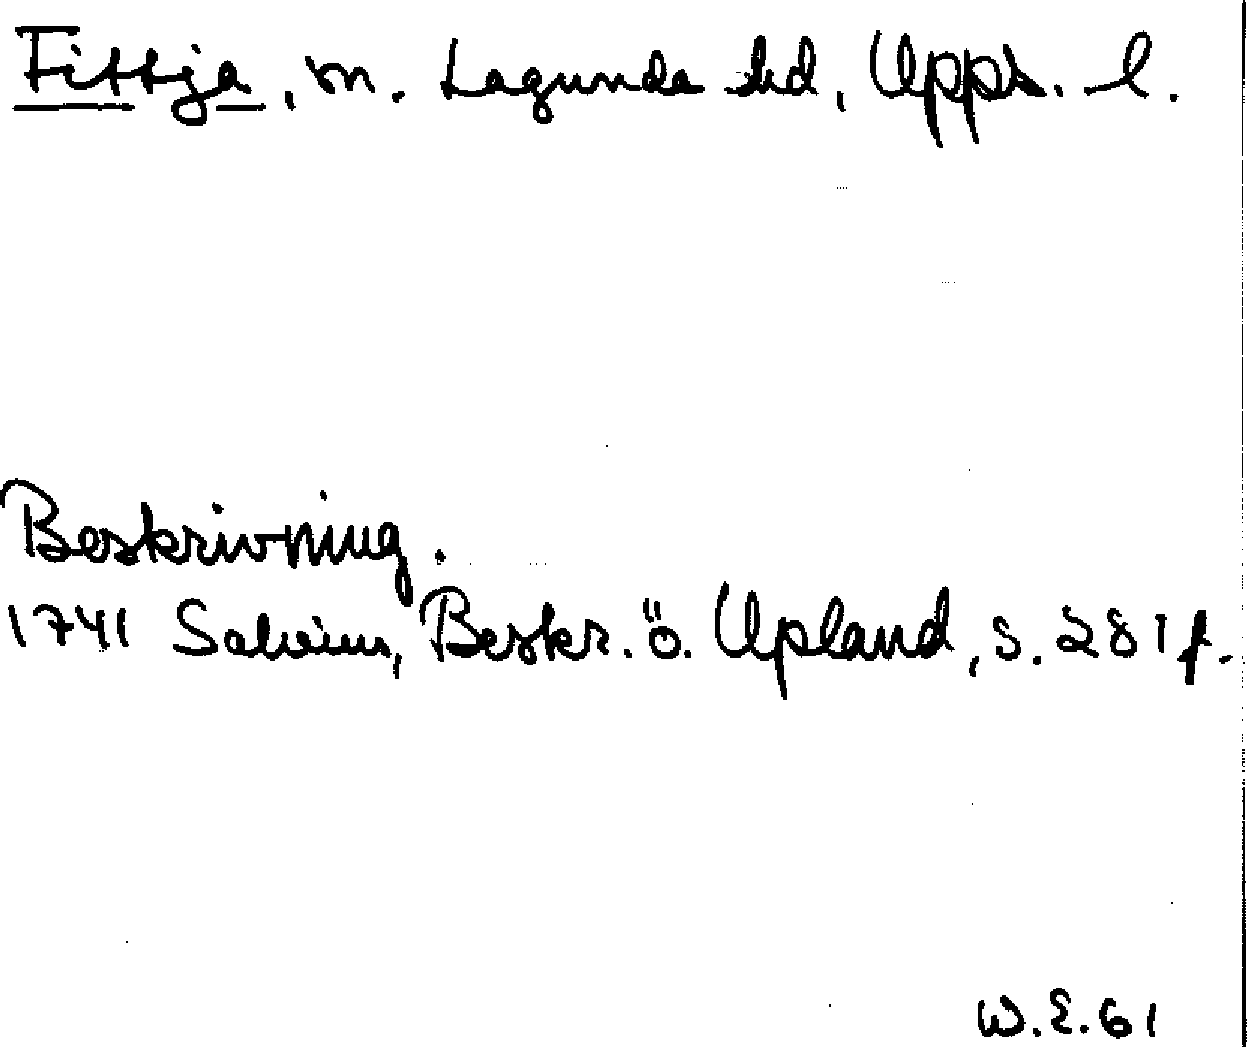 Fittja, sn. Lagunda hd, Upps. l.
Beskrivning.
1741 Salvius, Beskr. ö. Upland, s. 281 f.
W.E.61